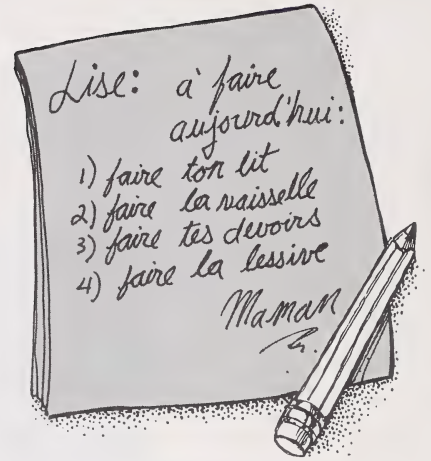 Lise: à faire
aujourd'hui:
1) faire ton lit
2) faire la vaisselle
3) faire tes devoirs
4) faire la lessive
Maman